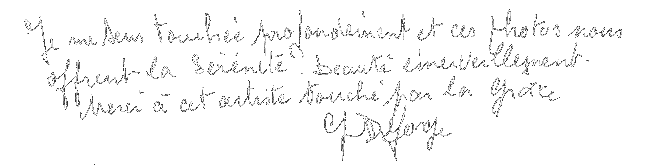 Je me sens touchée profondément et ces photos nous
offrent la Sérénité. beauté émerveillement.
Merci à cet artiste touché par la Grâce